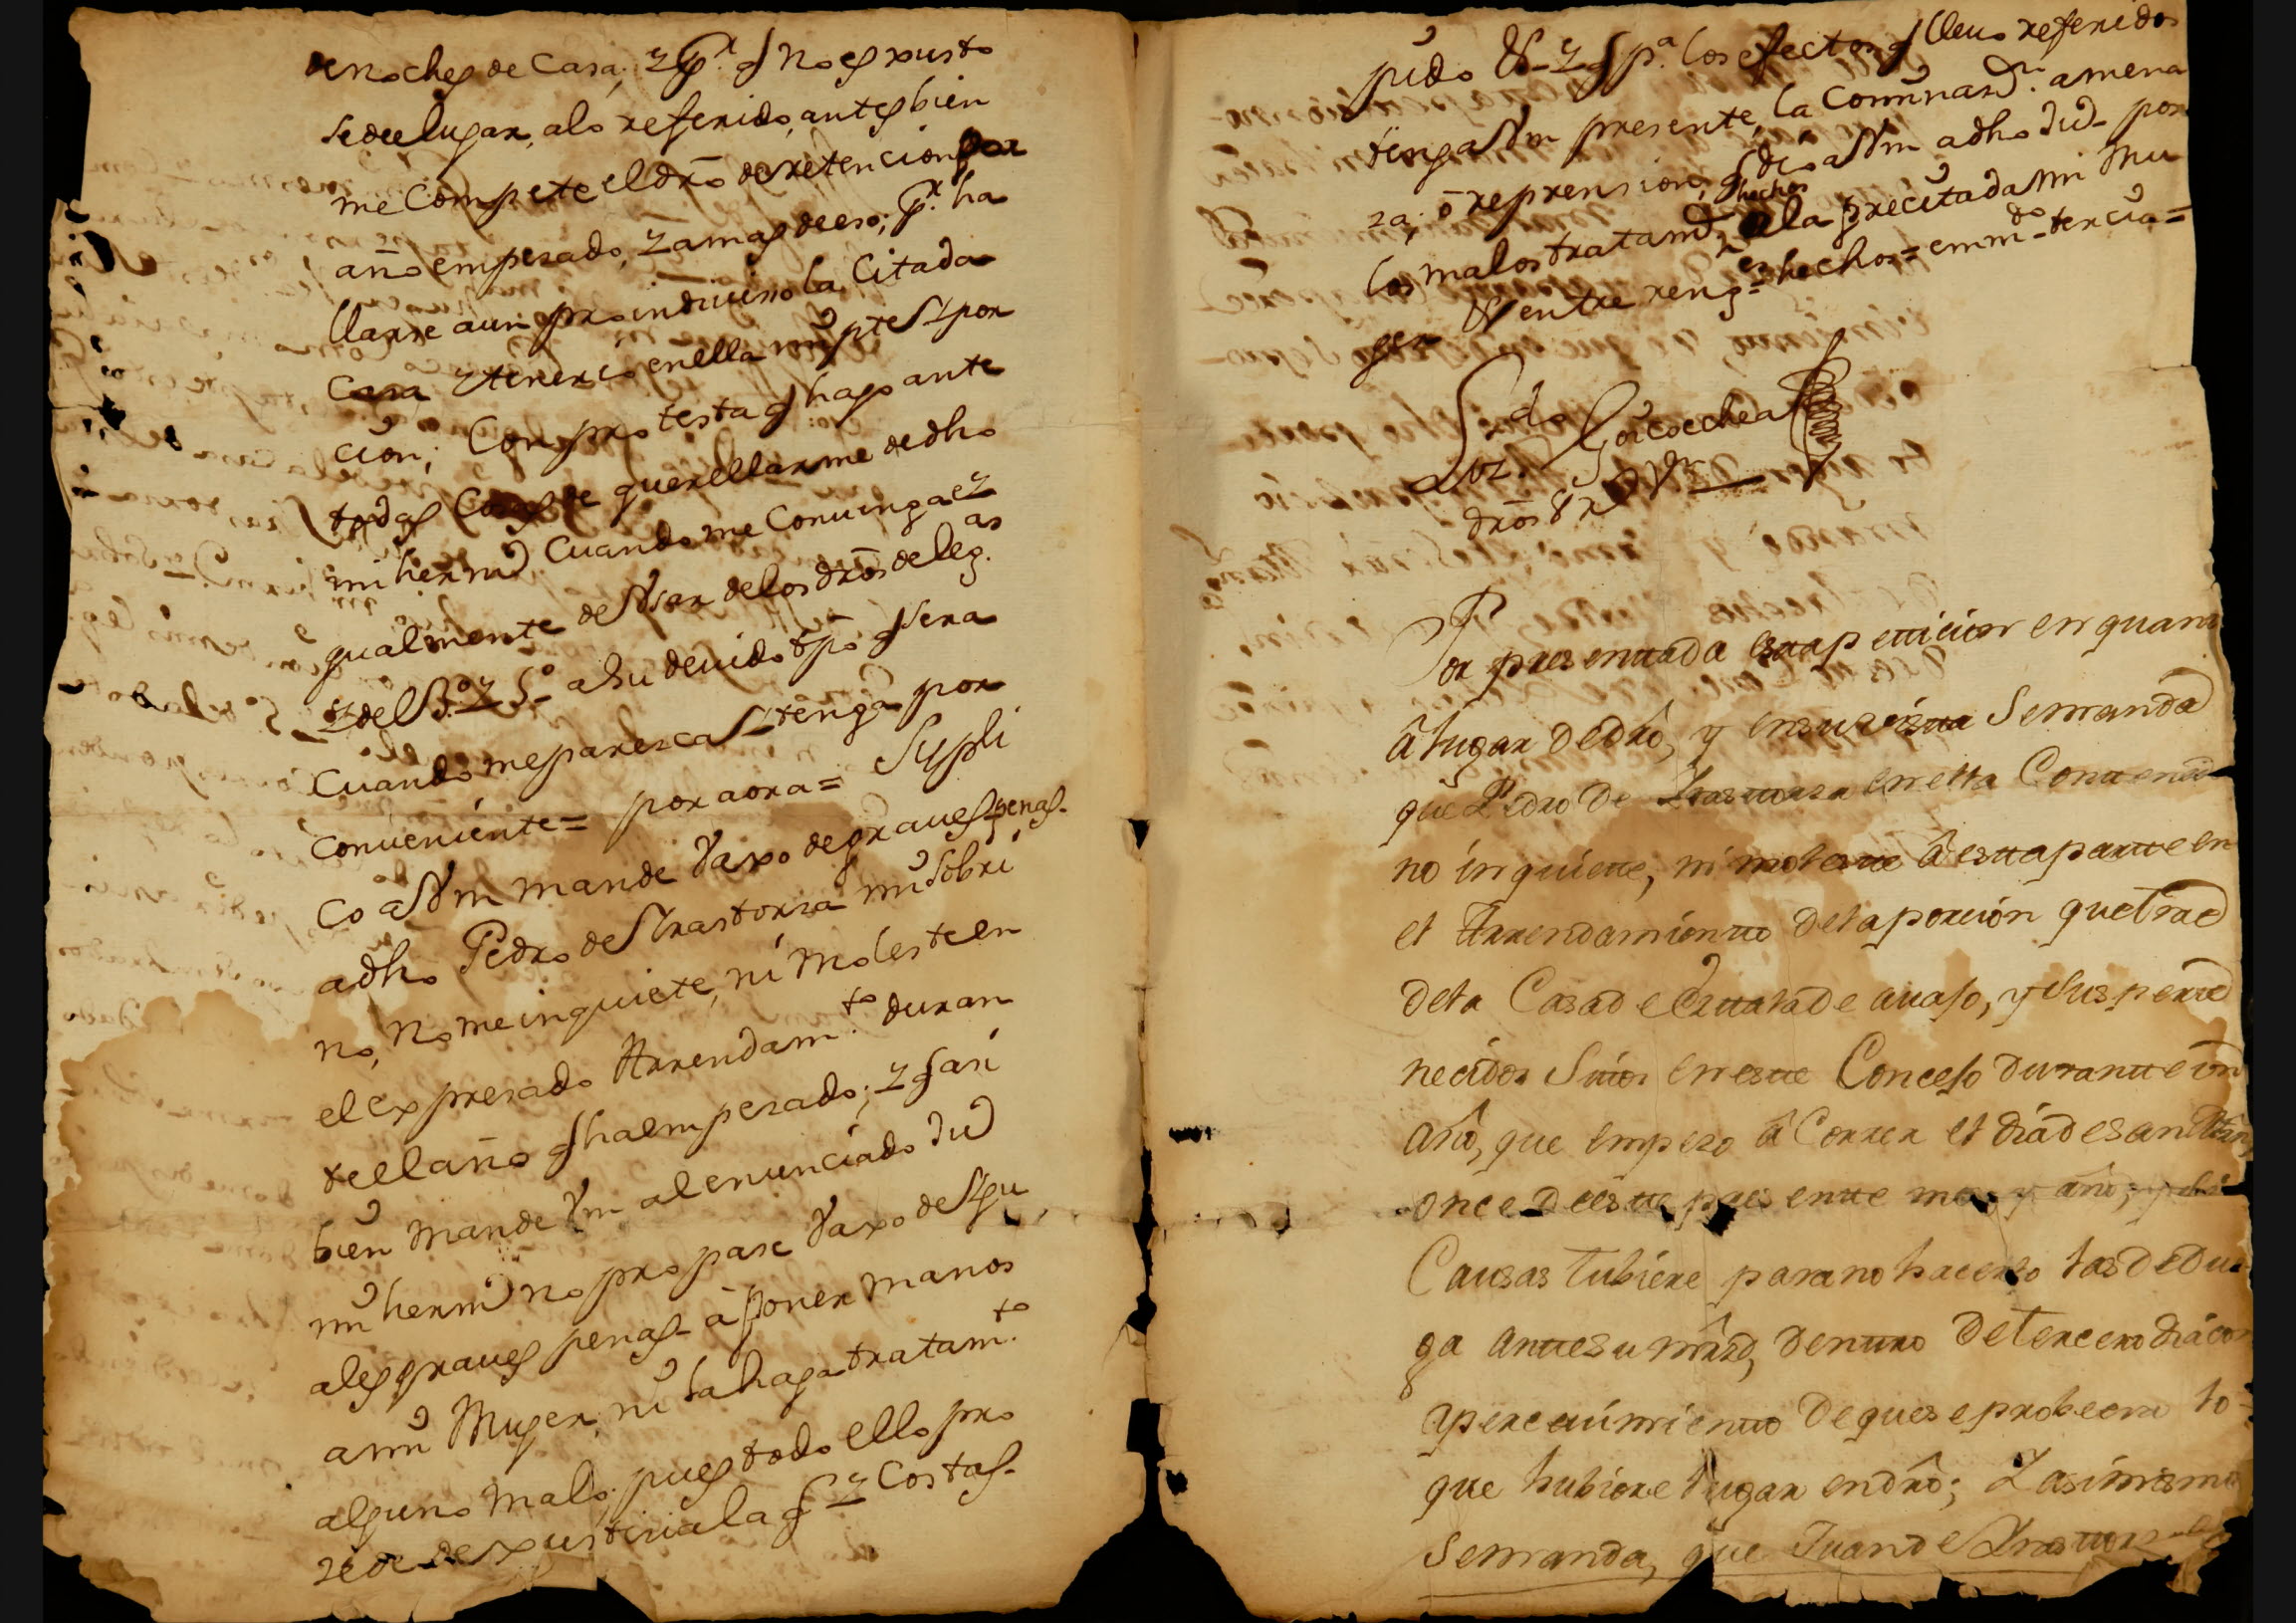 de noches de Casa; y pr. q No es xusto
se dee lugar, alo referido, antes bien
me Compete el dro de retencion por
año empesado, y a mas de eso; pr. ha
llarse aun proindiuiso la Citada
Casa y tener io en ella mi pte y por
cion; Con protesta q hago ante
todas Cosas de querellarme de dho
mi hermo Cuando me Conuinga e y
gualmente de Vsar de los dros de leg.as
y del 3.o y 5.o a su deuido tpo q sera
Cuando me paresca y tenga por
Conueniente= por aora= Supli
co a Vm mande Vaxo de graues penas
a dho Pedro de Yrastorza mi Sobri
no, No me inquiete, ni Moleste en
el expresado Arrendam.to duran
te el año q ha empesado; y q asi
bien Mande Vm al enunciado Ju.o
mi hermo no propase Vaxo de Ygu
ales graues penas a poner Manos
a mi Muger, ni la haga tratam.to
alguno Malo, pues todo ello pro
zede de xusticia la q y Costas
pido V- y q pa. los efectos q lleuo referidos
tenga Vm presente, la Cominaon. amena
za, o reprension, q dio a Vm a dho Ju.o por
los malos tratamtos hechos a la precitada mi Mu
ger V entre rengs= hechos= emmdo- tercia=
Ldo Goicoechea
dros 8 rs Vn
Por presentada esta peticion en quanto
â lugar de dro, y en su vista Se manda
que Pedro de Yrastorza en ella Contenido
no inquiete, ni moleste â esta parte en
el Arrendamiento de la porcion que trae
de la Casa de de auaso, y sus perte
necidos Sitos en este Conceso durante un
año, que empezo â Correr el dia de san Martin
once de este presente mes y año; y
Causas tubiere para no hacerlo las dedus
ga ante su mrd, dentro de tercero dia con
apercivimiento de que se probeera lo
que hubiere lugar en dro; Y asimismo
se manda, que Juan de Yrastorza